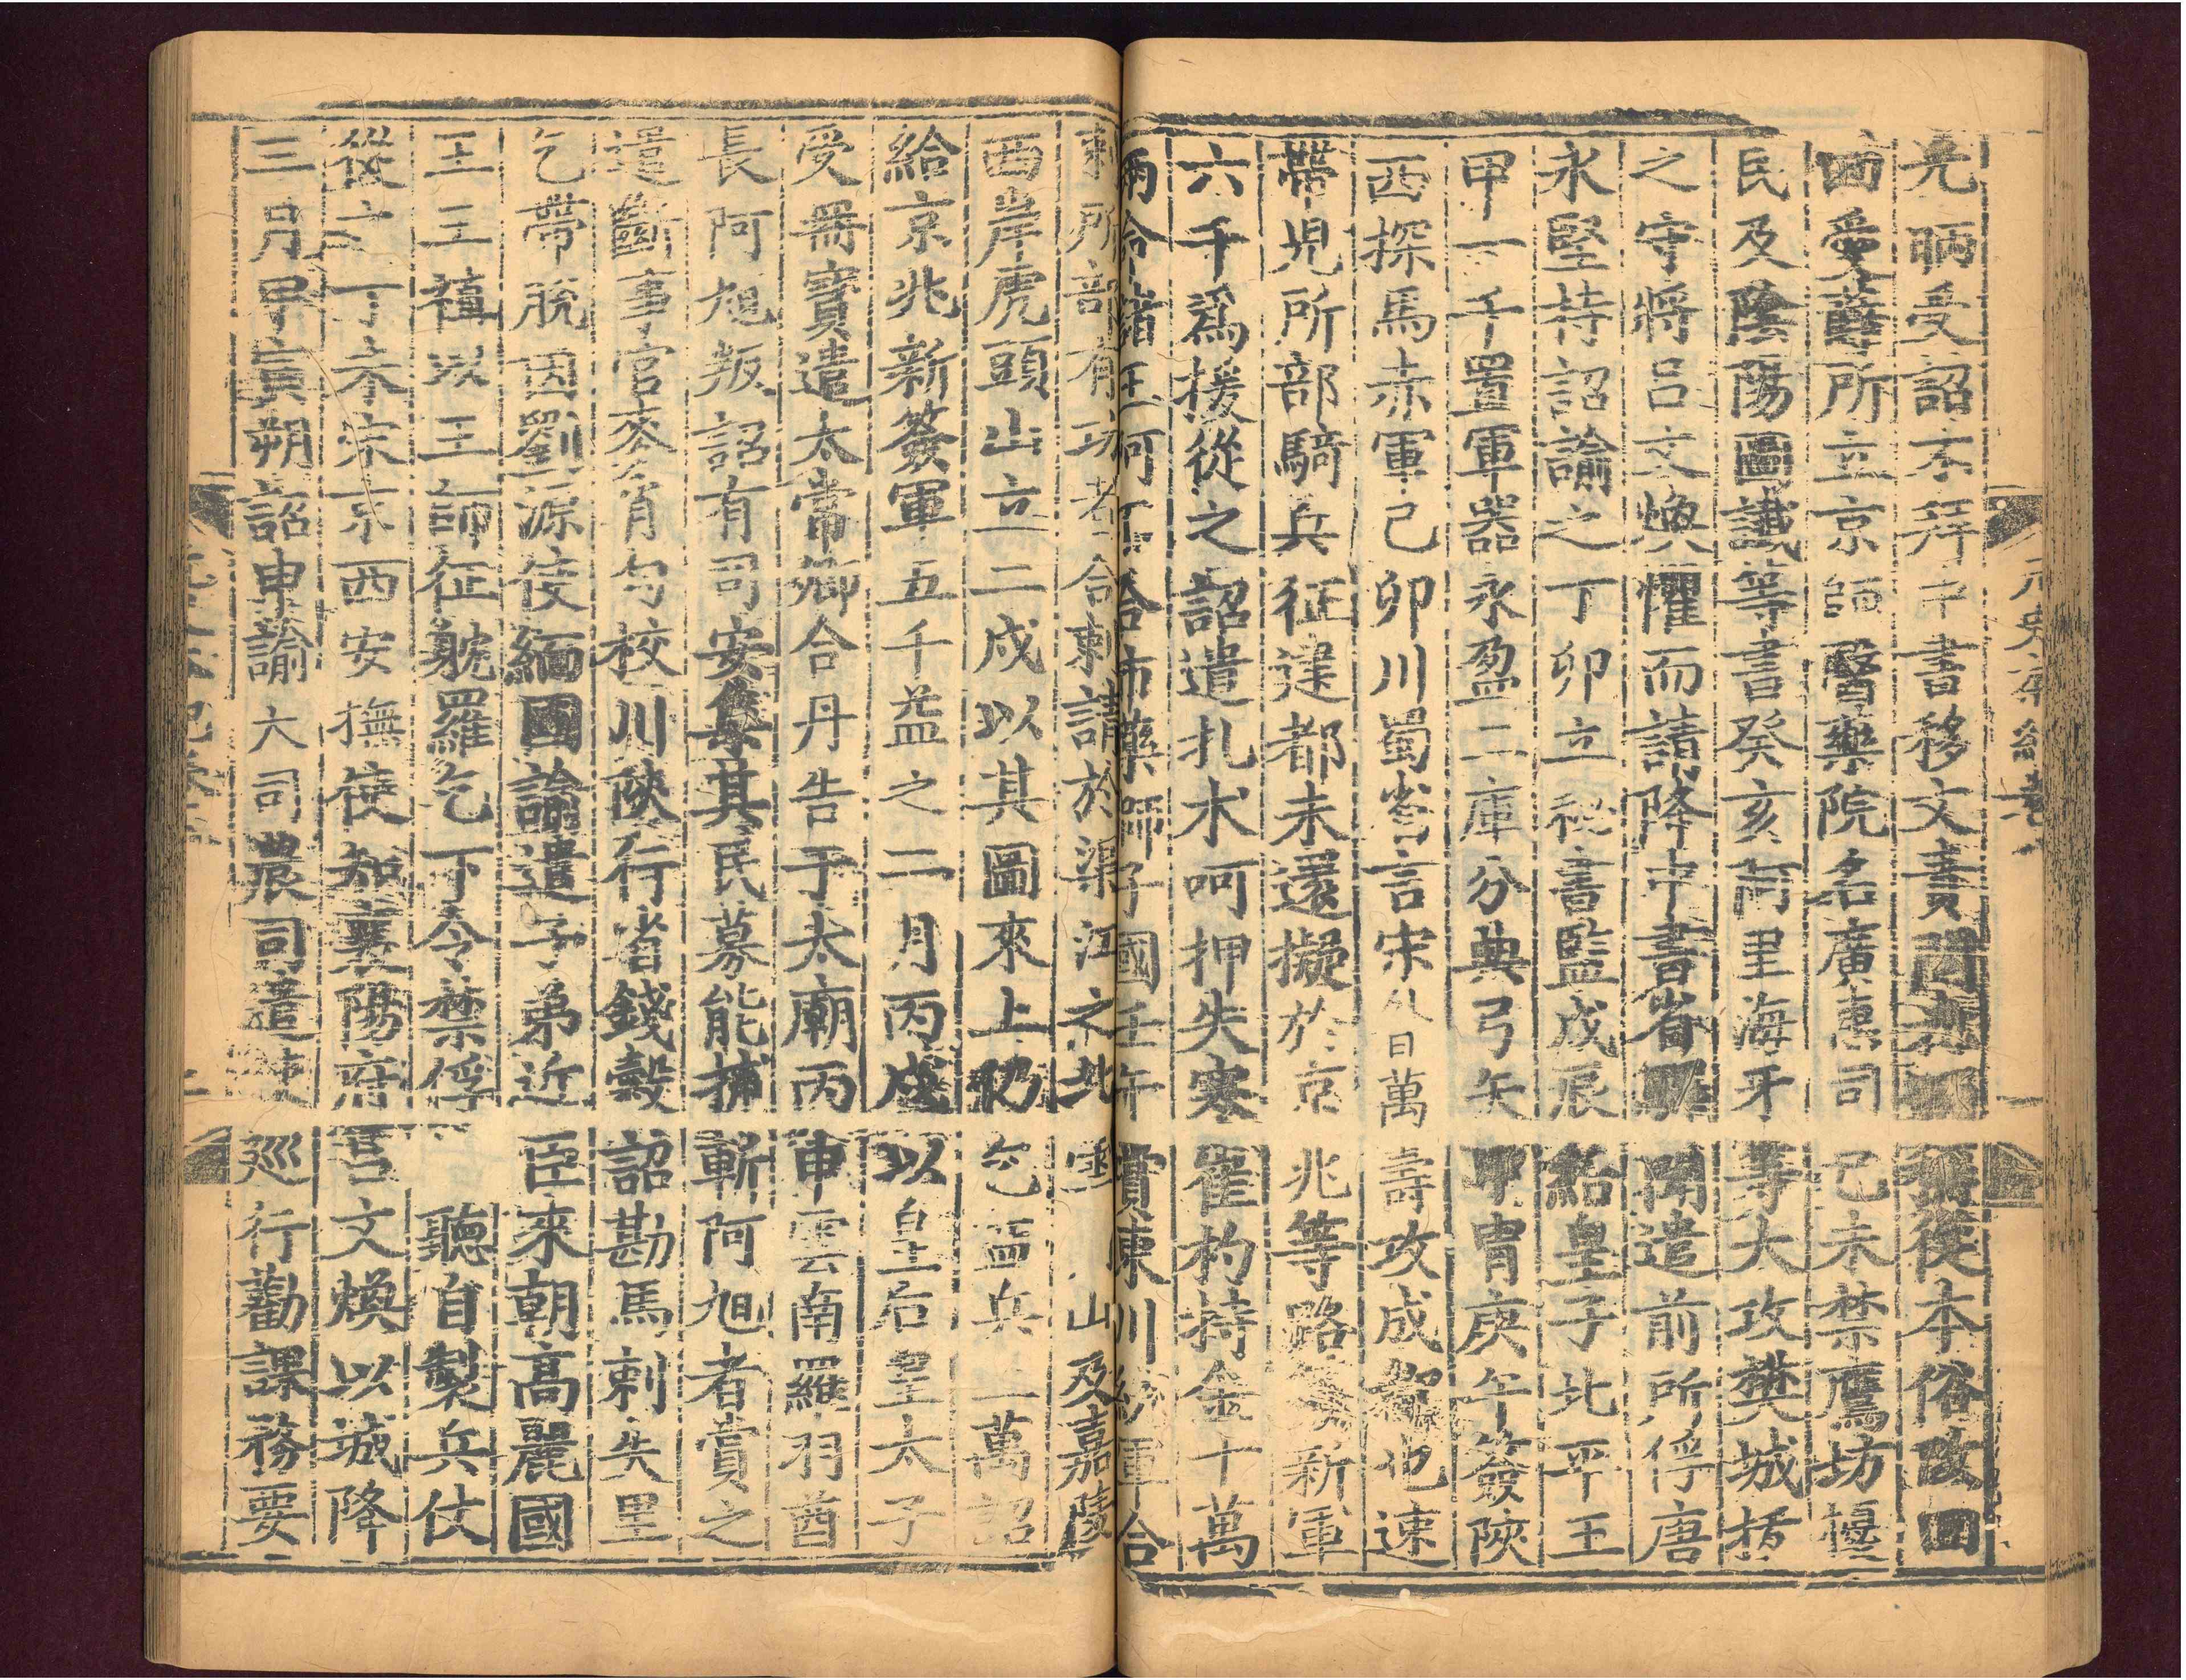 元史本紀
光昞受詔不拜中書移文責問光昞稱從本俗改回
回愛薛所立京師醫藥院名廣惠司己未禁鷹坊擾
民及陰陽圖讖等書癸亥阿里海牙等大攻樊城拔
之守將呂文煥懼而請降中書省驛聞遣前所俘唐
永堅持詔諭之丁卯立秘書監戊辰給皇子北平王
甲一千置軍器永盈二庫分典弓矢甲冑庚午簽陝
西探馬赤軍己卯川蜀省言宋从日萬壽攻成都也速
帶児所部騎兵征建都未還擬於京兆等路簽新軍
六千爲援從之詔遣扎木呵押失寒崔杓持金十萬
兩命諸王阿不合市藥師子國壬午賞東川統軍合
剌所部有功者合剌請於渠江之北雲山及嘉陵
西岸虎頭山立二戍以其圖來上仍乞益兵二萬詔
給京兆新簽軍五千益之二月丙戌以皇后皇太子
受冊寶遣太常卿合丹告于太廟丙申雲南羅羽酋
長阿旭叛詔有司安集其民募能捕斬阿旭者賞之
遣斷事官麥肖勾校川陝行省錢穀詔勘馬剌失里
乞帶脫因劉源使緬國諭遣子弟近臣來朝高麗國
王王稙以王師征躭羅乞下令禁俘聽自製兵仗
從之丁未宋京西安撫使知襄陽府呂文煥以城降
三月甲寅朔詔申諭大司農司遣使巡行勸課務要